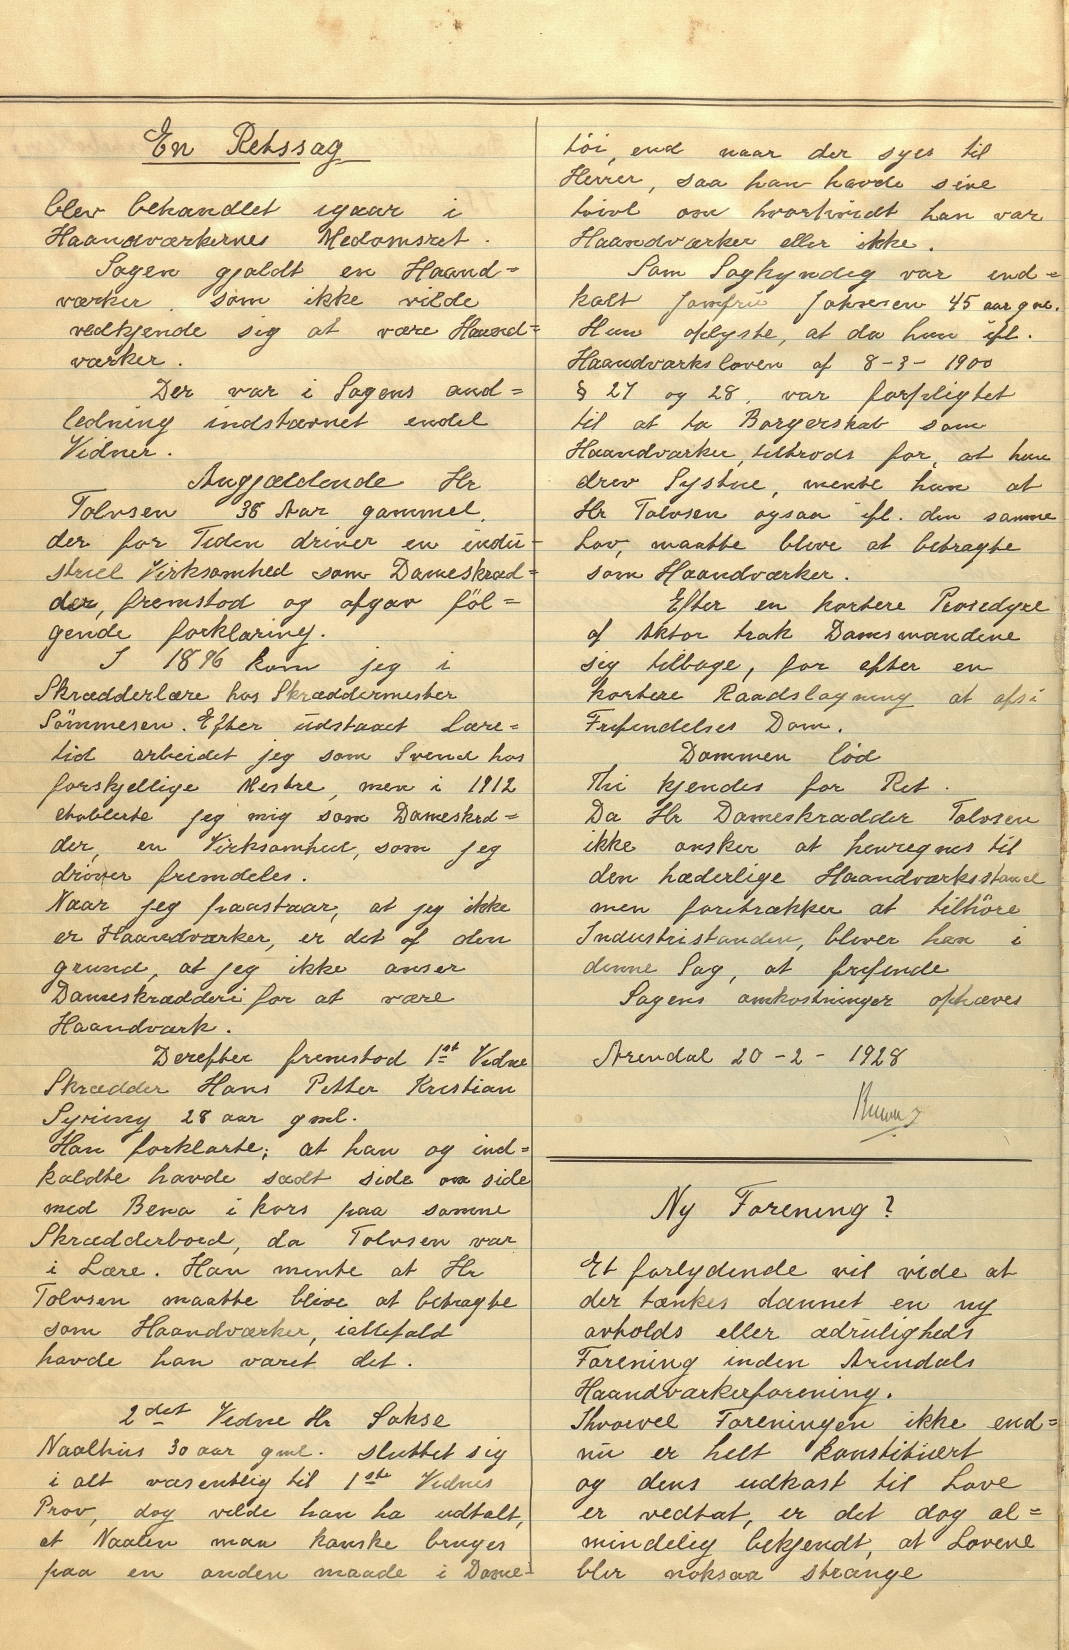 En Retssag
blev behandlet igaar i
Haandværkernes Medomsret.
Sagen gjaldt en Haand=
værker som ikke vilde
vedkjende sig at være Haand=
værker.
Der var i Sagens and=
ledning indstævnet endel
Vidner.
Angjældende Hr
Tolvsen 38 Aar gammel,
der for Tiden driver en indu=
striel Virksomhed som Dameskræd=
der, fremstod og afgav föl=
gende forklaring.
I 1896 kom jeg i
Skrædderlære hos Skræddermester
Sömmesen. Efter udstaaet Lære=
tid arbeidet jeg som Svend hos
forskjellige Mestre, men i 1912
etablerte jeg mig som Dameskræd=
der, en Virksomhed, som jeg
driver fremdeles.
Naar jeg paastaar, at jeg ikke
er Haandværker, er det af den
grund, at jeg ikke anser
Dameskrædderi for at være
Haandværk.
Derefter fremstod 1st Vidne
Skrædder Hans Petter Kristian
28 aar gml.
Han forklarte; at han og ind=
kaldte havde sadt side om side
med Bena i kors paa samme
Skrædderbord, da Tolvsen var
i Lære. Han mente at Hr
Tolvsen maatte blive at betragte
som Haandværker, iallefald
havde han været det.
2det Vidne Hr Sakse
Naalhus 30 aar gml. sluttet sig
i alt væsentlig til 1ste Vidnes
Prov, dog vilde han ha udtalt,
at Naalen maa kanske bruges
paa en anden maade i Dame=
töi, end naar der syes til
Herrer, saa han havde sine
tvivl om hvorhvidt han var
Haandværker eller ikke.
Som Sagkyndig var end=
kalt Jomfru Johnesen 45 aar gml.
Hun oplyste, at da hun ifl.
Haandværksloven af 8-3- 1900
§ 27 og 28, var forpligtet
til at ta Borgerskab som
Haandværker, tiltrods for, at hun
drev Systue, mente hun at
Hr Tolvsen ogsaa ifl. den samme
Lov, maatte blive at betragte
som Haandværker.
Efter en kortere Prosedyre
af Aktor trak Domsmændene
sig tilbage, for efter en
kortere Raadslagning at afsi
Frifindelses Dom.
Dommen löd
Thi kjendes for Ret.
Da Hr Dameskrædder Tolvsen
ikke önsker at henregnes til
den hæderlige Haandværksstand
men foretrækker at tilhöre
Industristanden, bliver han i
denne Sag, at frifinde
Sagens omkostninger ophæves
Arendal 20-2- 1928
Ny Forening?
Et forlydende vil vide at
der tænkes dannet en ny
avholds eller ædruligheds
Forening inden Arendals
Haandværkerforening.
Ihvorvel Foreningen ikke end=
nu er helt konstituert
og dens udkast til Love
er vedtat, er det dog al=
mindelig bekjendt, at Lovene
blir noksaa strænge